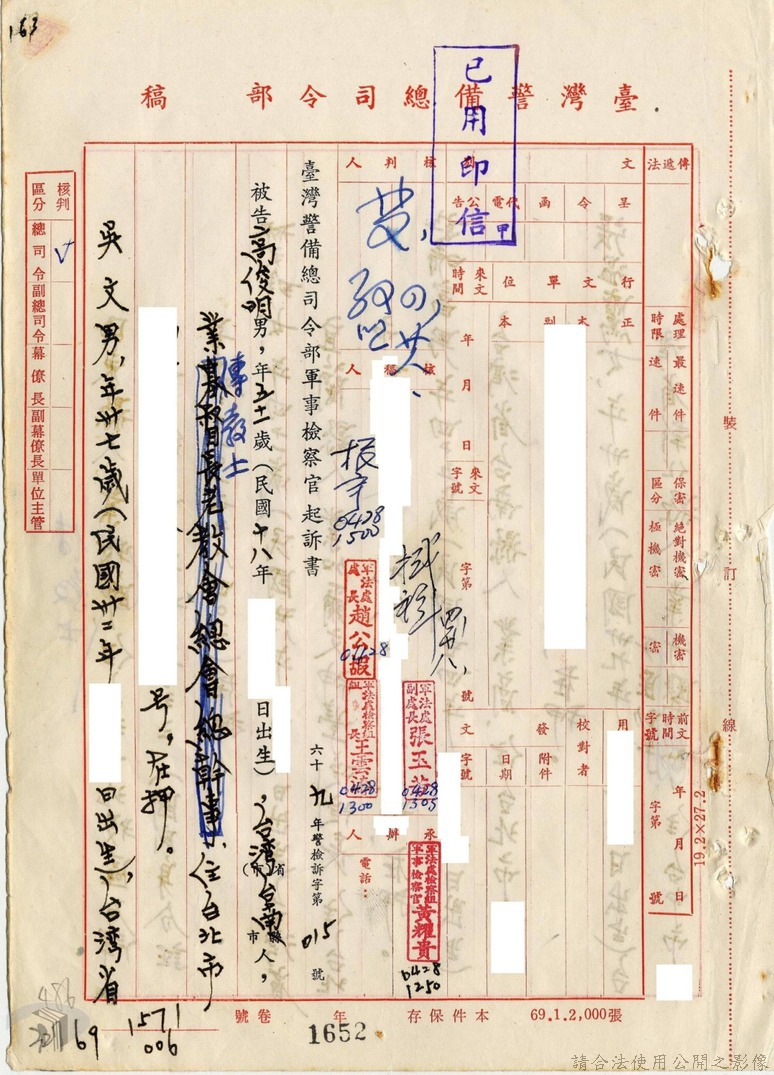 163
臺灣警備總司令部 稿
已用印信 甲
傳遞法
文別
呈
令
函
代電
公告
核判人
處理時限
最速件
速件
保密區分
絕對機密
極機密
機密
密
前文時間字號
年 月 日
字第 號
行文單位
正本
副本
來文時間
年 月 日
來文字號
字第 號
核稿人
振宇
0428
1500
軍法處處長 趙公嘏
0428
軍法處檢察組組長 王雲
0428
1300
軍法處副處長 張玉
0428
1305
發文
日期
附件
字號
校對者
用
承辦人
電話:
軍法處檢察組軍事檢察官 黃耀貴
0428
1250
臺灣警備總司令部軍事檢察官起訴書
六十九年警檢訴字第015號
被告高俊明男,年五十一歲(民國十八年
日出生),台灣省(市)台南縣市人,
業基督長老教會總會總幹事,住台北市
傳教士
号,在押。
吳文男,年卅七歲(民國卅二年
日出生),台灣省
核判區分
總司令
副總司令
幕僚長
副幕僚長
單位主管
裝
訂
線
19.2×27.2
69.1.2,000張
本件保存 年
卷號
1652
1571
69
006
請合法使用公開之影像